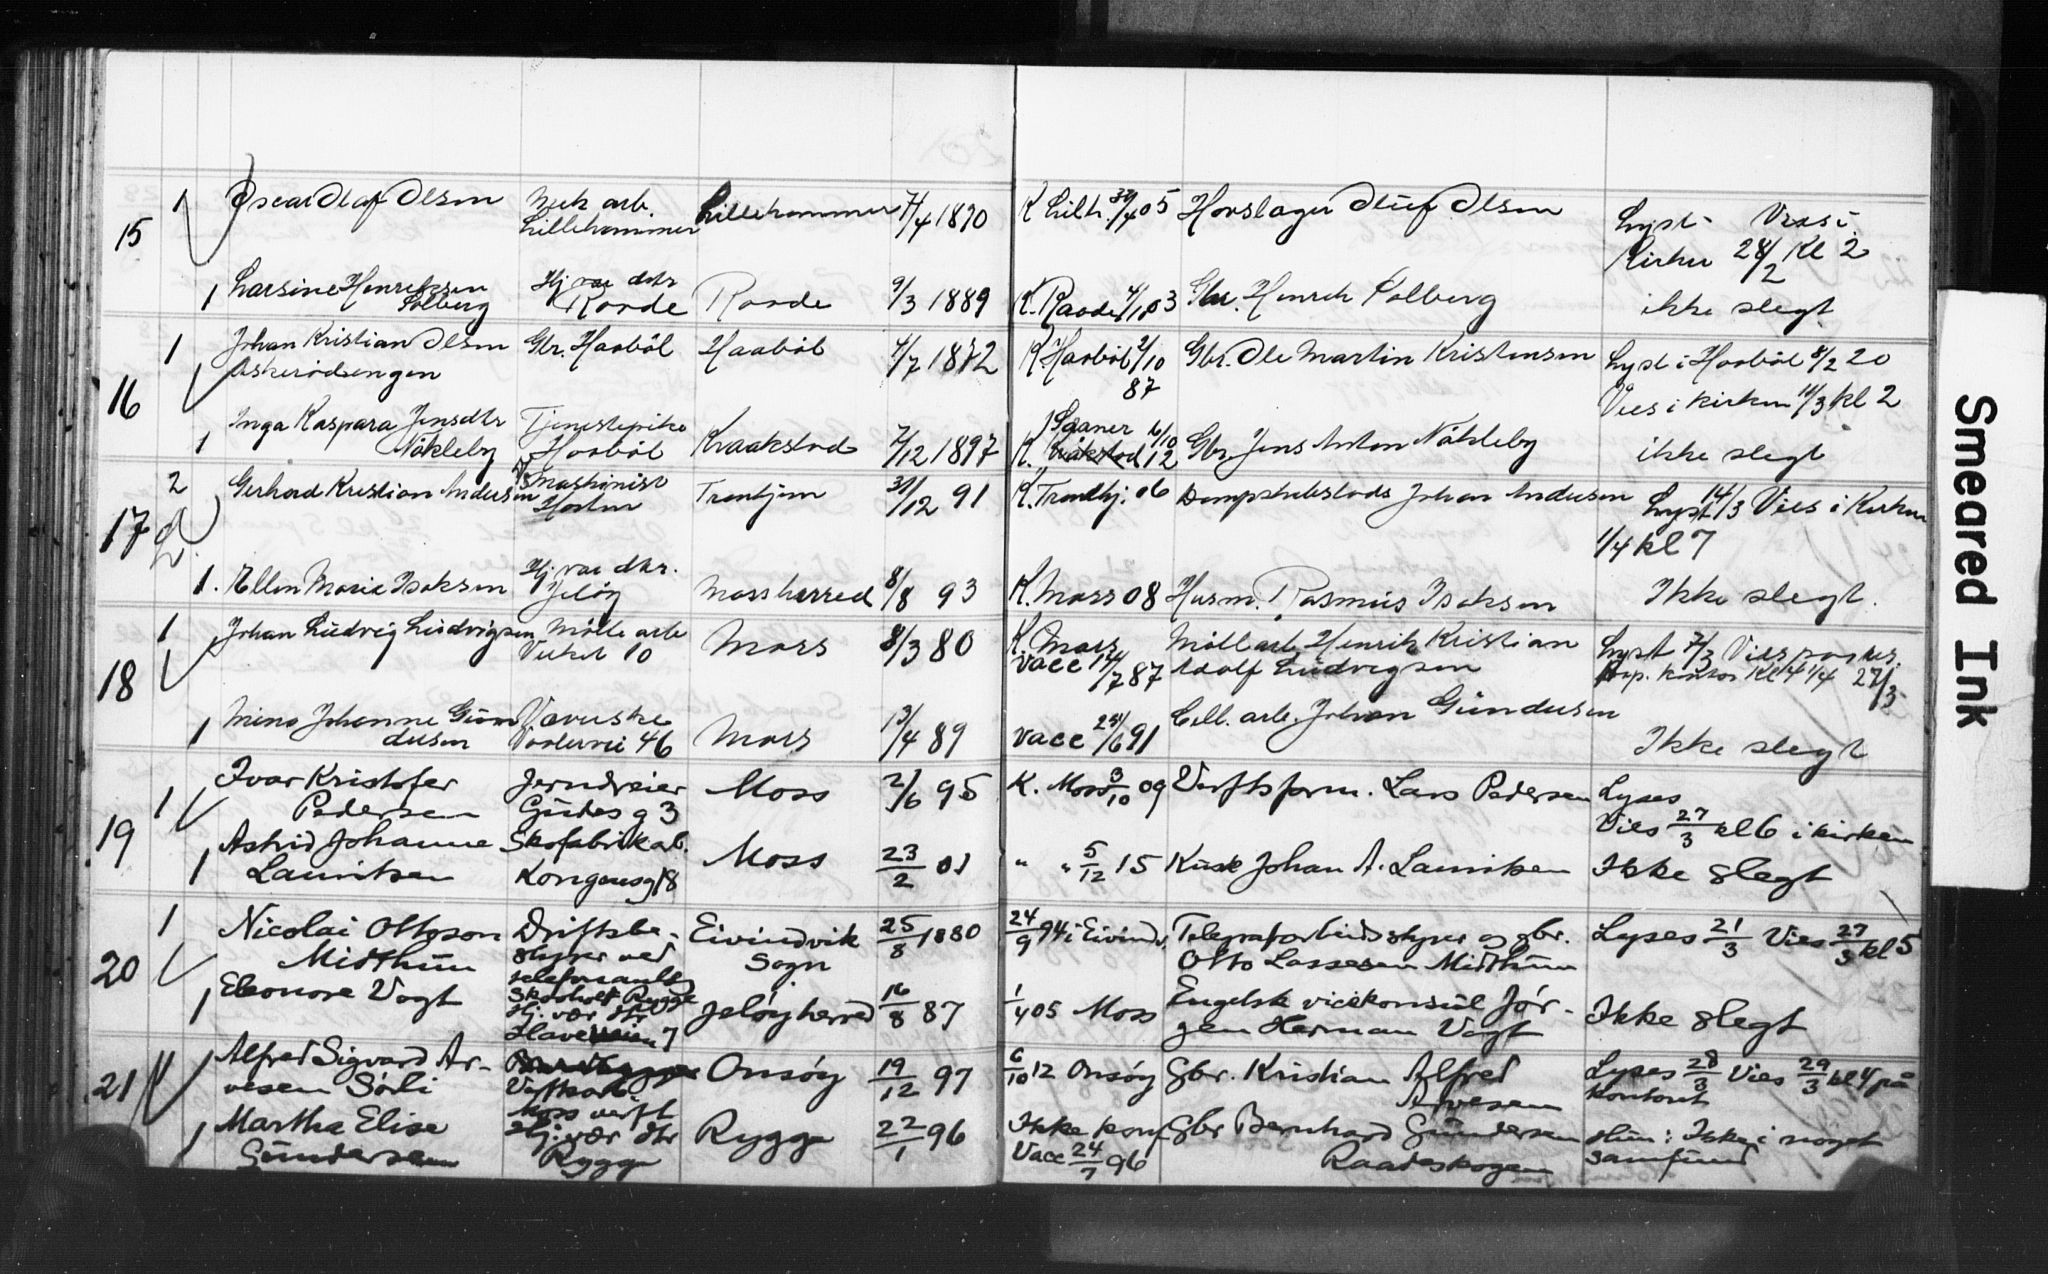 15
1 Oscar Olaf Olsen Mek arb. Lillehammer 7/4 1890 K Lilh. 30/4 05 Hovslager Oluf Olsen Lyst Vies i
Lillehammer Kirken 28/2 Kl 2
1 Larsine Henriksen Hj vae dtr Raade 9/3 1889 K. Raade 4/10 03 Gbr. Henrik Solberg ikke slegt
Solberg Raade
16
1 Johan Kristian Olsen Gbr. Haabøl Haabøl 7/7 1872 K Haabøl 2/10 Gbr. Ole Martin Kristensen Lyst i Haabøl 8/2 20
Askerødsengen 87 Vies i kirken 11/3 kl 2
1 Inga Kaspara Jensdtr Tjenestepike Kraakstad 7/12 1897 Saaner 16/10 Gbr. Jens Anton Nökleby ikke slegt
Nökleby Haabøl K. Kråkstad 12
17
2 Gerhard Kristian Andersen Maskinist Trontjem 31/12 91 K. Tronthj. 06 Dampskibslods Johan Andersen Lyst 14/3 Vies i Kirken
Horten 1/4 kl 7
1. Ellen Marie Isaksen Hj vae dtr. Moss herred 8/8 93 K. Moss 08 Husm. Rasmus Isaksen Ikke slegt.
Jeløy
18
1 Johan Ludvig Ludvigsen Mölle arb Moss 8/3 80 K. Moss Möllearb. Henrik Kristian Lyst 7/3 Vies
Verket 10 vacc 14/7 87 Adolf Ludvigsen kontor Kl 4 1/4 27/3
1 Mina Johanne Gun- Væverske Moss 13/4 89 vacc 25/6 91 Cell. arb. Johan Gundersen Ikke slegt
dersen Vaalervei 46
19
1 Ivar Kristofer Jerndreier Moss 2/6 95 K. Moss 3/10 09 Verftsform. Lars Pedersen Lyses
Pedersen Gudes g 3 Vies 27/3 kl 6 i kirken
1 Astrid Johanne Skofabrikarb. Moss 23/2 01 " " 5/12 15 Kusk Johan A. Lauritsen Ikke slegt
Lauritsen Kongensg 18
20
1 Nicolai Ottoson Driftsbe- Eivindvik 25/8 1880 24/9 94 i Eivindv. Telegrafarbeidsstyrer og gbr. Lyses 21/3 Vies 27/3 kl 5
Midthun styrer ved Sogn Otto Lassesen Midthun
telefonanlæg
Skovholt Rygge
1 Eleonore Vogt Hj. vær dtr Jeløy herred 16/8 87 1/4 05 Moss Engelsk vicekonsul Jör- Ikke slegt
Haveveien 7 gen Herman Vogt
21
1 Alfred Sigvard Ar- Onsøy 19/12 97 6/10 12 Onsøy Gbr. Kristian Alfred Lyses 28/3 Vies 29/3 kl 4 på
vesen Sørli Verftsarb. Arvesen kontoret
Moss verft
1 Martha Elise Hj. vær dtr Rygge 22/1 96 Ikke konf Gbr Bernhard Gundersen Hun: Ikke i noget
Gundersen Rygge Vacc 24/7 96 Raadeskogen samfund
Smeared Ink